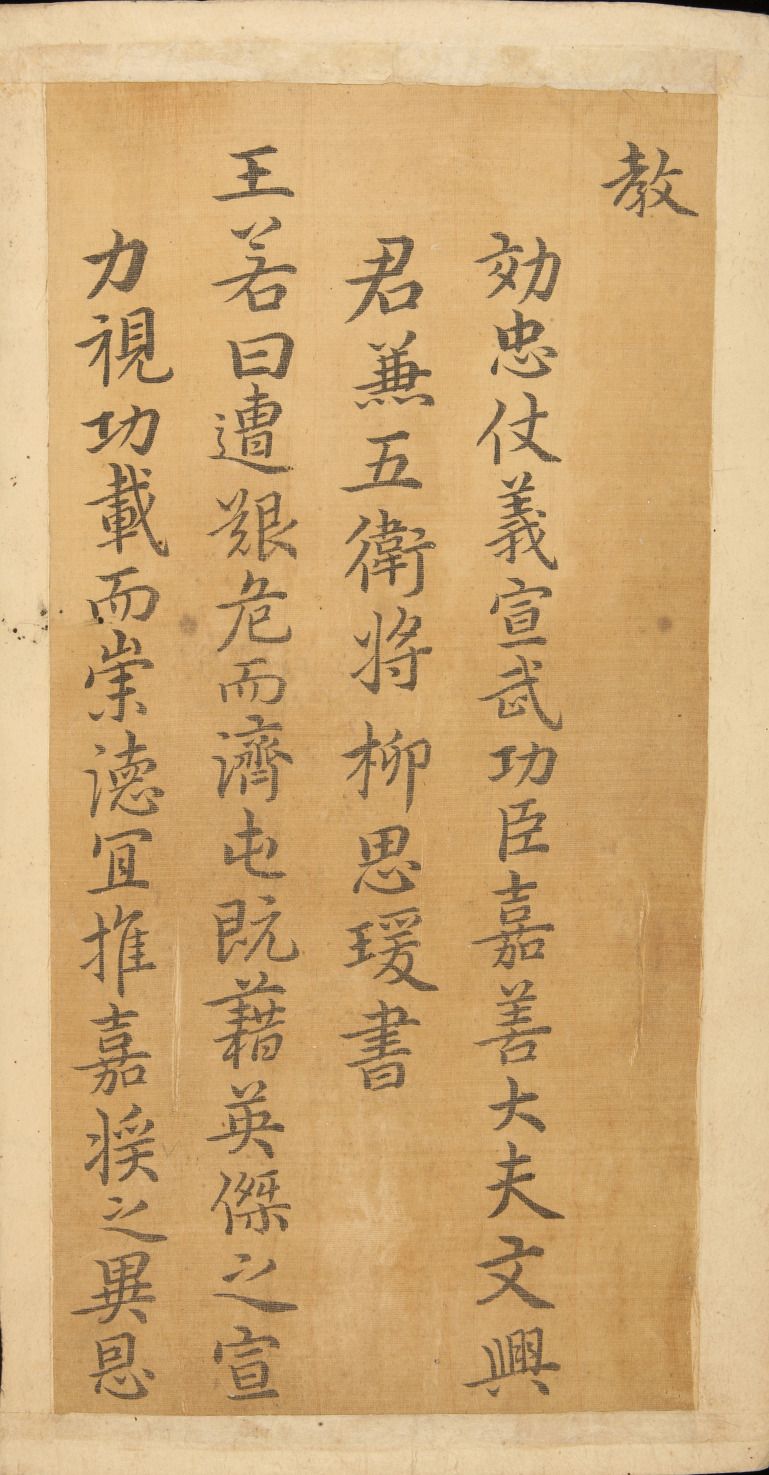 教
効忠仗義宣武功臣嘉善大夫文興
君兼五衛将柳思瑗書
王若曰遭艱危而濟屯既藉英傑之宣
力視功載而崇德宜推嘉奬之異恩